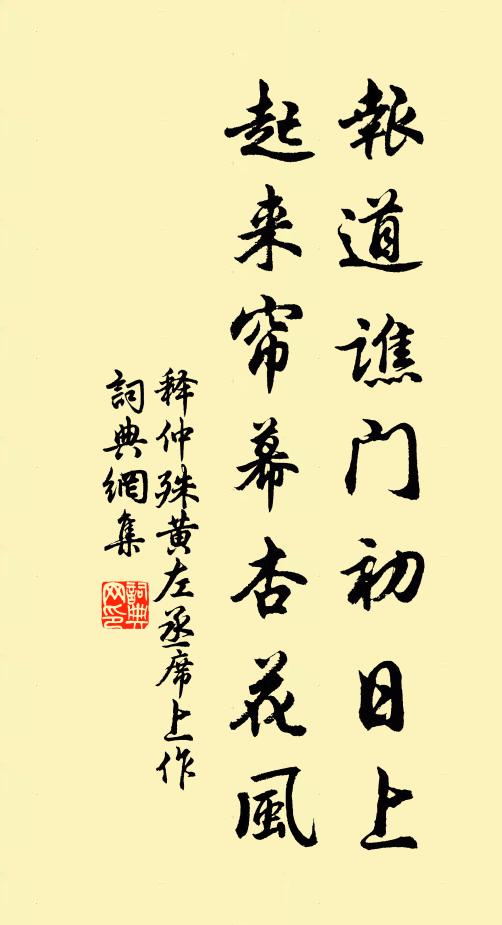 報道譙門初日上
起来帘幕杏花風
释仲殊黄左丞席上作
詞典網集
詞典网印